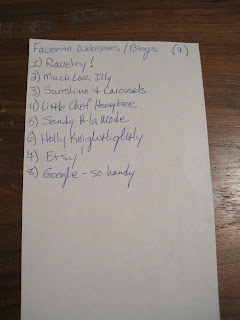 Favorite Websites/Blogs (7)
1) Ravelry!
2) Much Love, Illy
3) Sunshine & Carousels
4) Little Chef Honeybee
5) Sandy A la Mode
6) Holly Knightlightly
7) Etsy!
8) Google - so handy